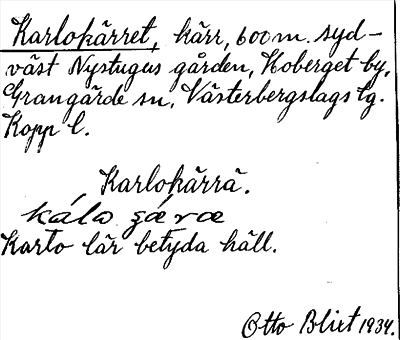 Karlokärret, kärr, 600 m. syd-
väst Nystugus gården, Hoberget by,
Grangärde sn, Västerbergslags tg.
Kopp l.
Karlokärrä.
Karlo lär betyda häll.
Otto Blixt 1934.